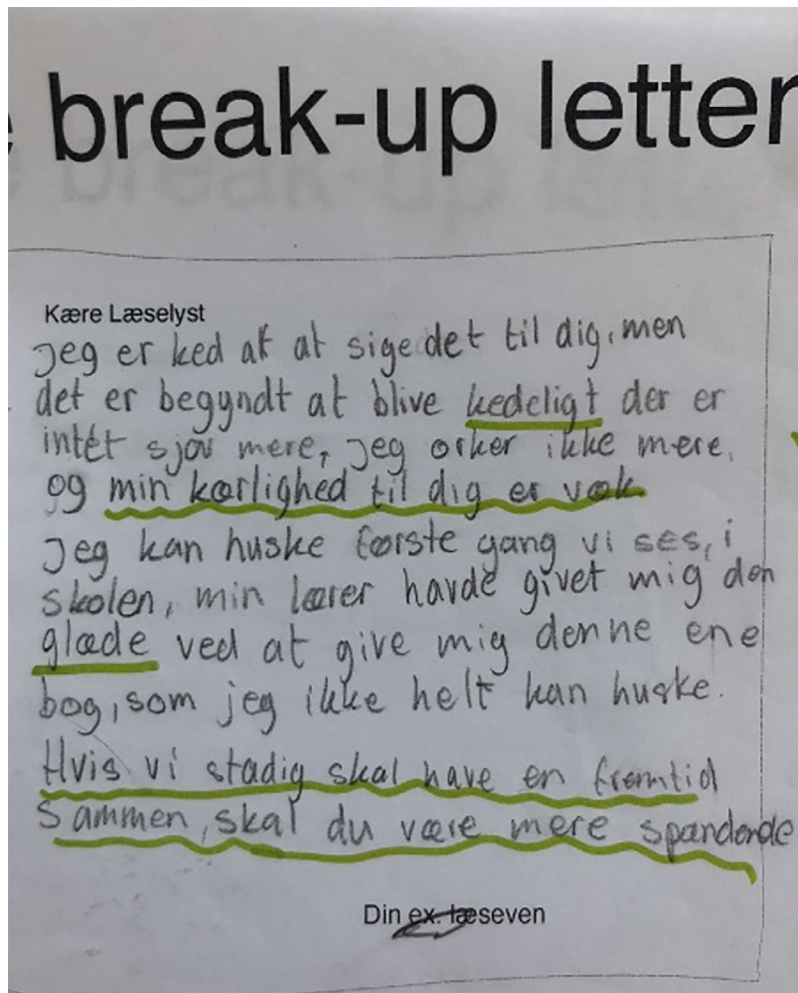 break-up letter
Kære Læselyst
jeg er ked af at sige det til dig, men
det er begyndt at blive kedeligt der er
intet sjov mere, jeg orker ikke mere,
og min kærlighed til dig er væk.
jeg kan huske første gang vi ses, i
skolen, min lærer havde givet mig den
glæde ved at give mig denne ene
bog, som jeg ikke helt kan huske.
Hvis vi stadig skal have en fremtid
sammen, skal du være mere spændende
Din ex. læseven